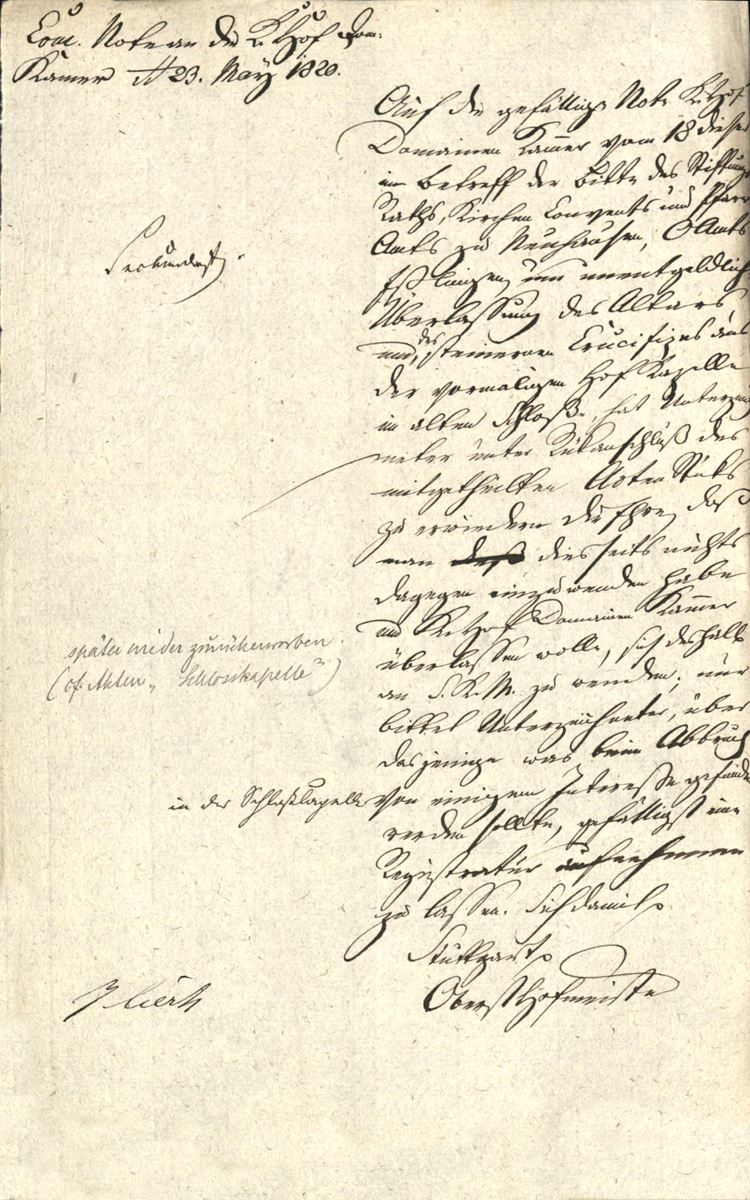 Conc. Note an die K. Hof Dom.
Kamer d. 23. May 1820.
Auf die gefällige Note K. Hof
Domainen Kamer vom 18 dieses
im Betreff der Bitte des Stiftungs
Raths, Kirchen Convents und Pfarr
Amts zu Neuhausen, OAmts
Eßlingen, um unentgeldliche
Überlassung des Altars
und des steinernen Crucifixes aus
der vormaligen Hof Kapelle
im alten Schloße, hat Unterzeich
neter unter Rükanschluß des
mitgetheilten Acten Stüks
zu erwiedern die Ehre, daß
man diesseits nichts
dagegen einzuwenden habe
und K. Hof Domainen Kamer
überlassen wolle, sich deshalb
an S. K. M. zu wenden; nur
bittet Unterzeichneter, über
dasjenige was beim Abbruch
in der Schloßkapelle
von einigem Interesse gefunden
werden sollte, gefälligst eine
Registratur aufnehmen
zu lassen. Sich damit
Stuttgart
Obersthofmeister
später wieder zurückerworben
(cf. Akten "Schlosskapelle")